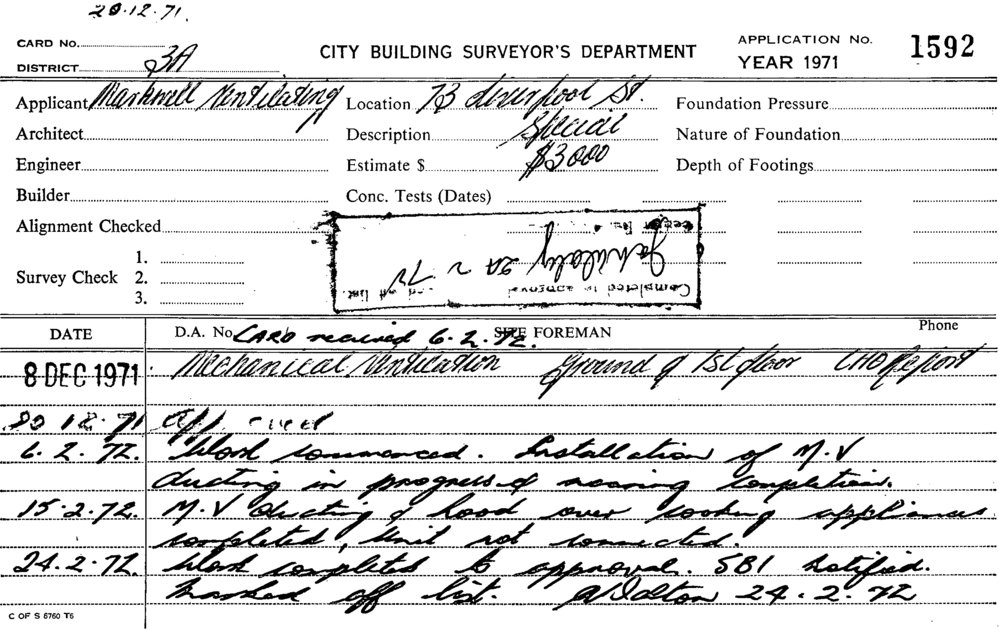 20.12.71.
CARD No.
DISTRICT 3A
CITY BUILDING SURVEYOR'S DEPARTMENT
APPLICATION No. 1592
YEAR 1971
Applicant Markwell Ventilating Location 73 Liverpool St. Foundation Pressure
Architect Description Special Nature of Foundation
Engineer Estimate $ $3000 Depth of Footings
Builder Conc. Tests (Dates)
Alignment Checked
Survey Check 1.
2.
3.
Completed to approval
24 2 72
list.
DATE D.A. No. CARD received 6.2.72. SITE FOREMAN Phone
8 DEC 1971 Mechanical Ventilation Ground & 1st floor CHO Report
20 12.71 App.
6.2.72. Work commenced. Installation of M.V
ducting in progress & nearing completion.
15.2.72. M.V ducting & hood over cooking appliances
completed, Unit not connected.
24.2.72. Work completed to approval. SBI notified.
Marked off list. A Dalton 24.2.72
C OF S 6760 T6